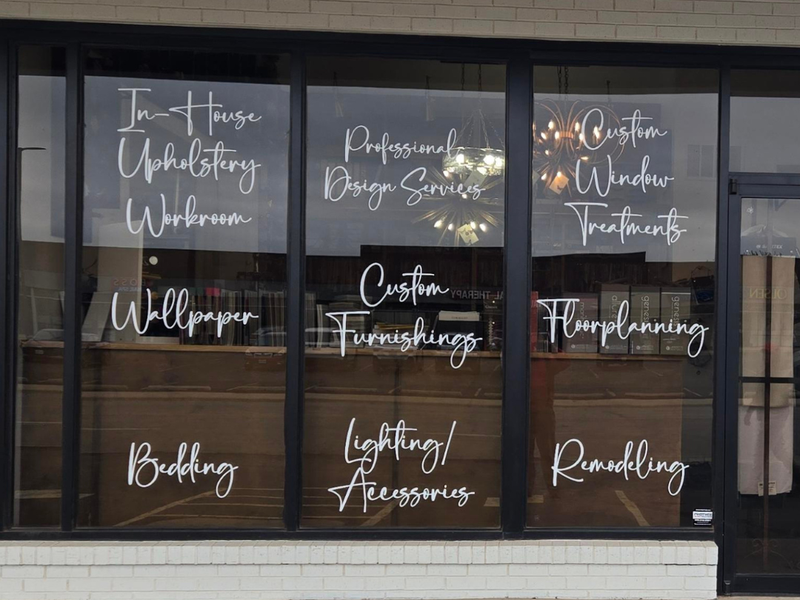 In-House
Upholstery
Workroom
Professional
Design Services
Custom
Window
Treatments
Wallpaper
Custom
Furnishings
Floorplanning
Bedding
Lighting/
Accessories
Remodeling